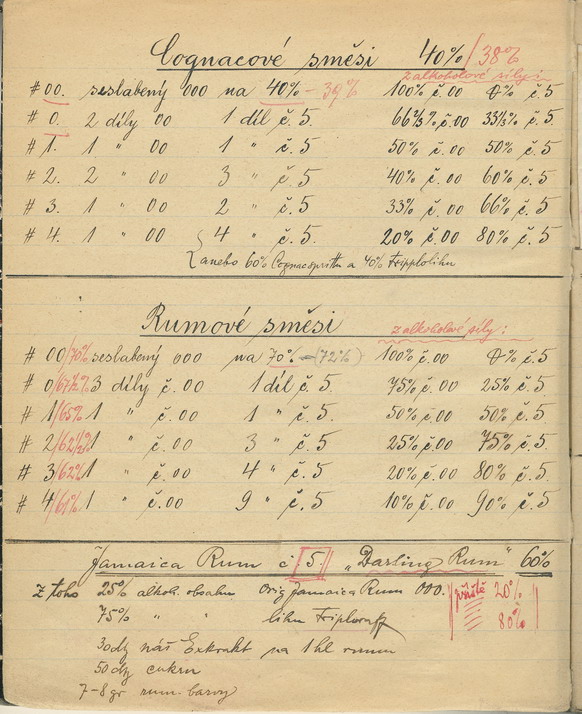 Cognacové směsi 40% / 38%
z alkoholové síly:
# 00. seslabený 000 na 40% - 39% 100% č.00 0% č 5
# 0. 2 díly 00 1 díl č.5. 66⅔% č.00 33⅓% č.5
# 1. 1 " 00 1 " č.5 50% č.00 50% č.5
# 2. 2 " 00 3 " č.5 40% č.00 60% č.5
# 3. 1 " 00 2 " č.5 33% č.00 66% č.5
# 4. 1 " 00 4 " č.5. 20% č.00 80% č.5
anebo 60% Cognacspritu a 40% Tripplolihu
Rumové směsi
z alkoholové síly:
# 00/70% seslabený 000 na 70% = (72%) 100% č.00 0% č.5
# 0/67½% 3 díly č.00 1 díl č.5. 75% č.00 25% č.5
# 1/65% 1 " č.00 1 " č.5 50% č.00 50% č.5
# 2/62½% 1 " č.00 3 " č.5 25% č.00 75% č.5
# 3/62% 1 " č.00 4 " č.5 20% č.00 80% č.5
# 4/61% 1 " č.00 9 " č.5 10% č.00 90% č.5
Jamaica Rum č 5. „Darling Rum" 60%
Z toho 25% alkoh. obsahu orig Jamaica Rum 000. příště 20%
75% " " lihu 80%
náš Extrakt na 1 hl rumu
cukru
7-8 gr rum. barvy